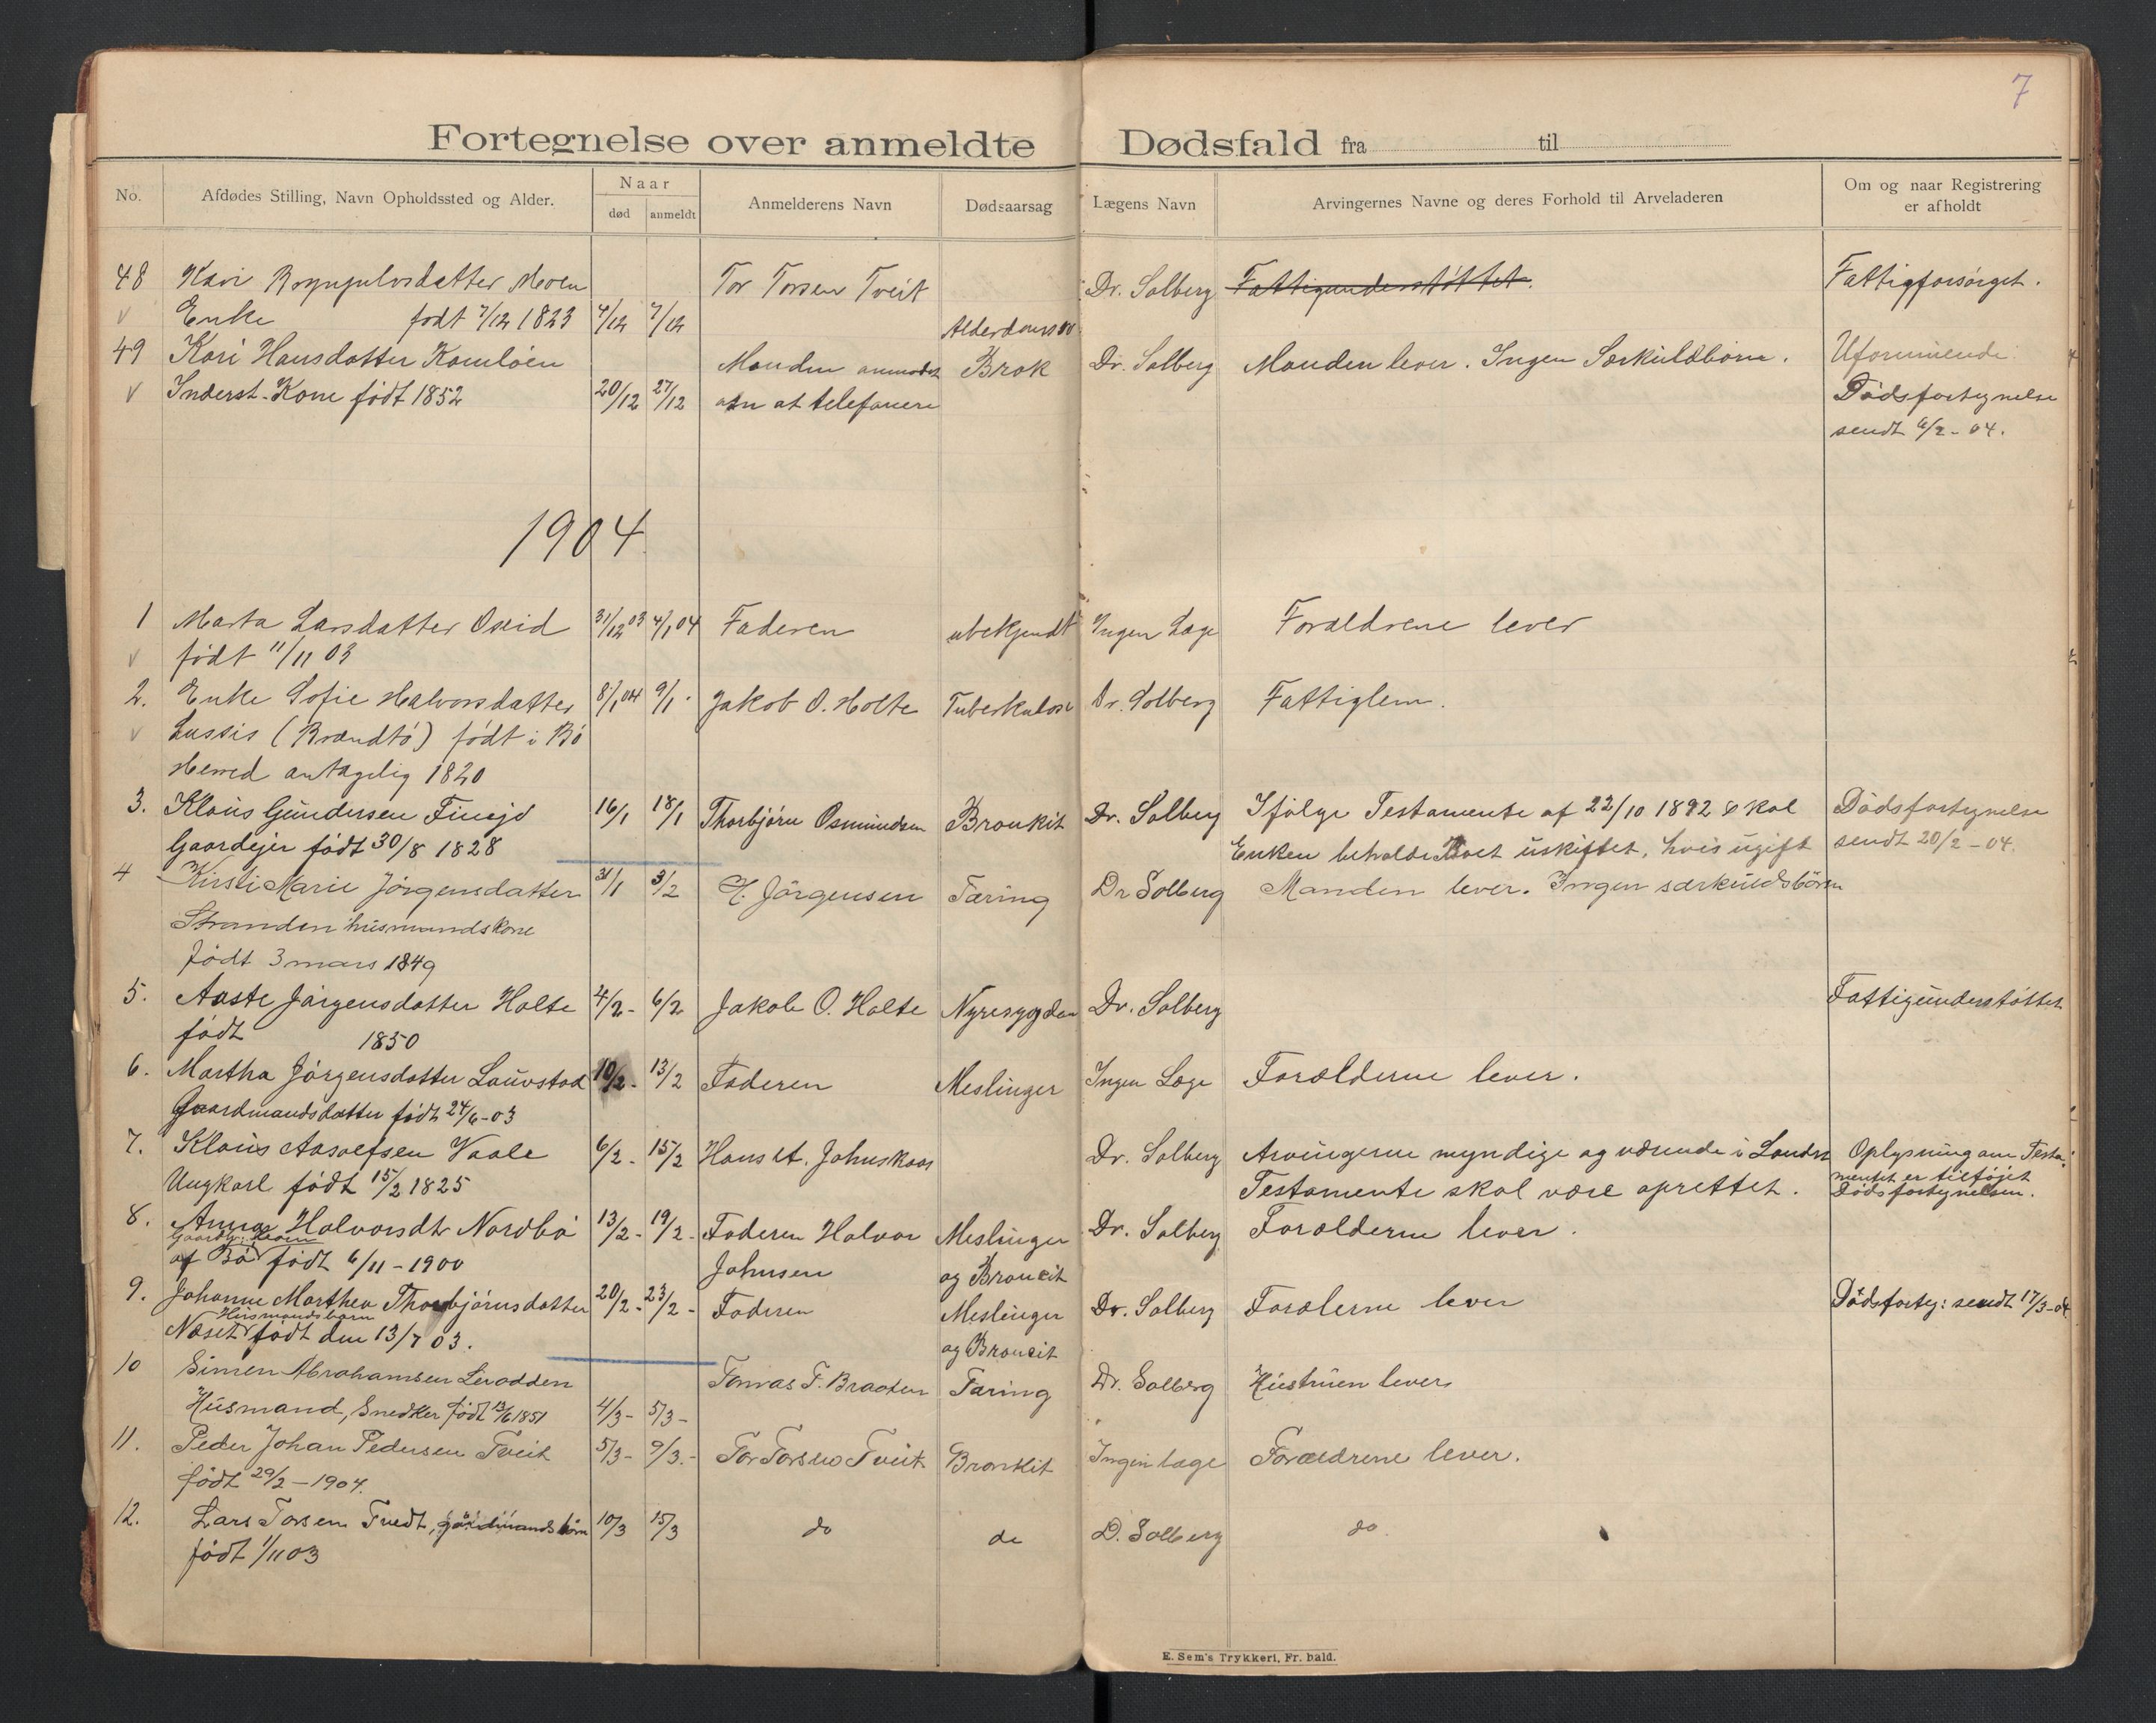 7
Fortegnelse over anmeldte Dødsfald fra til
No. Afdødes Stilling, Navn Opholdssted og Alder. Naar død anmeldt Anmelderens Navn Dødsaarsag Lægens Navn Arvingernes Navne og deres Forhold til Arveladeren Om og naar Registrering er afholdt
48 Kari Moen Tor Torsen Tveit Dr. Solberg Fattigunderstøttet. Fattigforsørget.
v Enke født 7/12 1823 4/12 7/12
49 Kari Hansdatter Manden Brok Dr. Solberg Manden lever. Ingen Særkuldbørn. Uformuende.
v Inderst-Kone født 1852 20/12 27/12 at telefonere Dødsfortegnelse
sendt 6/2-04.
1904
1 Marta Larsdatter 31/12 03 4/1 04 Faderen ubekjendt Ingen Læge Forældrene lever
v født 11/11 03
2. Enke Sofie Halvorsdatter 8/1 04 9/1 Jakob O. Holte Tuberkulose Dr. Solberg Fattiglem.
v Lussis (Brændtø) født i Bø
Herred antagelig 1820
3. Klaus Gundersen 16/1 18/1 Thorbjørn Osmundsen Bronkit Dr. Solberg Ifølge Testamente af 22/10 1892 skal Dødsfortegnelse
Gaardejer født 30/8 1828 Enken beholde Boet uskiftet, hvis ugift sendt 20/2-04.
4 Kirsti Marie Jörgensdatter 31/1 3/2 H. Jörgensen Tæring Dr Solberg Manden lever. Ingen særkuldsbörn
Stranden husmandskone
född 3 mars 1849
5. Aaste Jørgensdatter Holte 4/2- 6/2 Jakob O. Holte Nyresygdom Dr. Solberg Fattigunderstøttet
født 1850
6. Martha Jørgensdatter Lauvstad 10/2- 13/2 Faderen Meslinger Ingen Læge Forælderne lever.
Gaardmandsdatter født 24/6-03
7. Klaus Aasolfsen Vaale 6/2- 15/2 Hans A. Johnskaas Dr. Solberg Arvingerne myndige og værende i Landet Oplysning om Testa-
Ungkarl født 15/2 1825 Testamente skal være oprettet. mentet er tilføjet
Dødsfortegnelsen.
8. Anna Halvorsdtr Nordbø 13/2- 19/2- Faderen Halvor Meslinger Dr. Solberg Forælderne lever.
af Bø født 6/11-1900 Johnsen og Broncit
9. Johanne Marthea Thorbjørnsdatter 20/2- 23/2- Faderen Meslinger Dr. Solberg Forælerne lever Dødsforteg: sendt 17/3-04
Husmandsbarn
Næset født den 13/7 03. og Broncit
10 Simen Abrahamsen Lerodden Tomas T. Braaten Tæring Dr. Solberg Hustruen lever
Husmand, Snedker født 13/6 1851 4/3- 5/3-
11. Peder Johan Pedersen Tveit 5/3- 9/3.- Tor Torsen Tveit Bronkit Ingen læge Forældrene lever.
født 29/2-1904.
12. Lars Torsen Tvedt, gårdmandsbörn 10/3 15/3 do do D. Solberg do.
født 1/11 03
E. Sem's Trykkeri, Fr. hald.